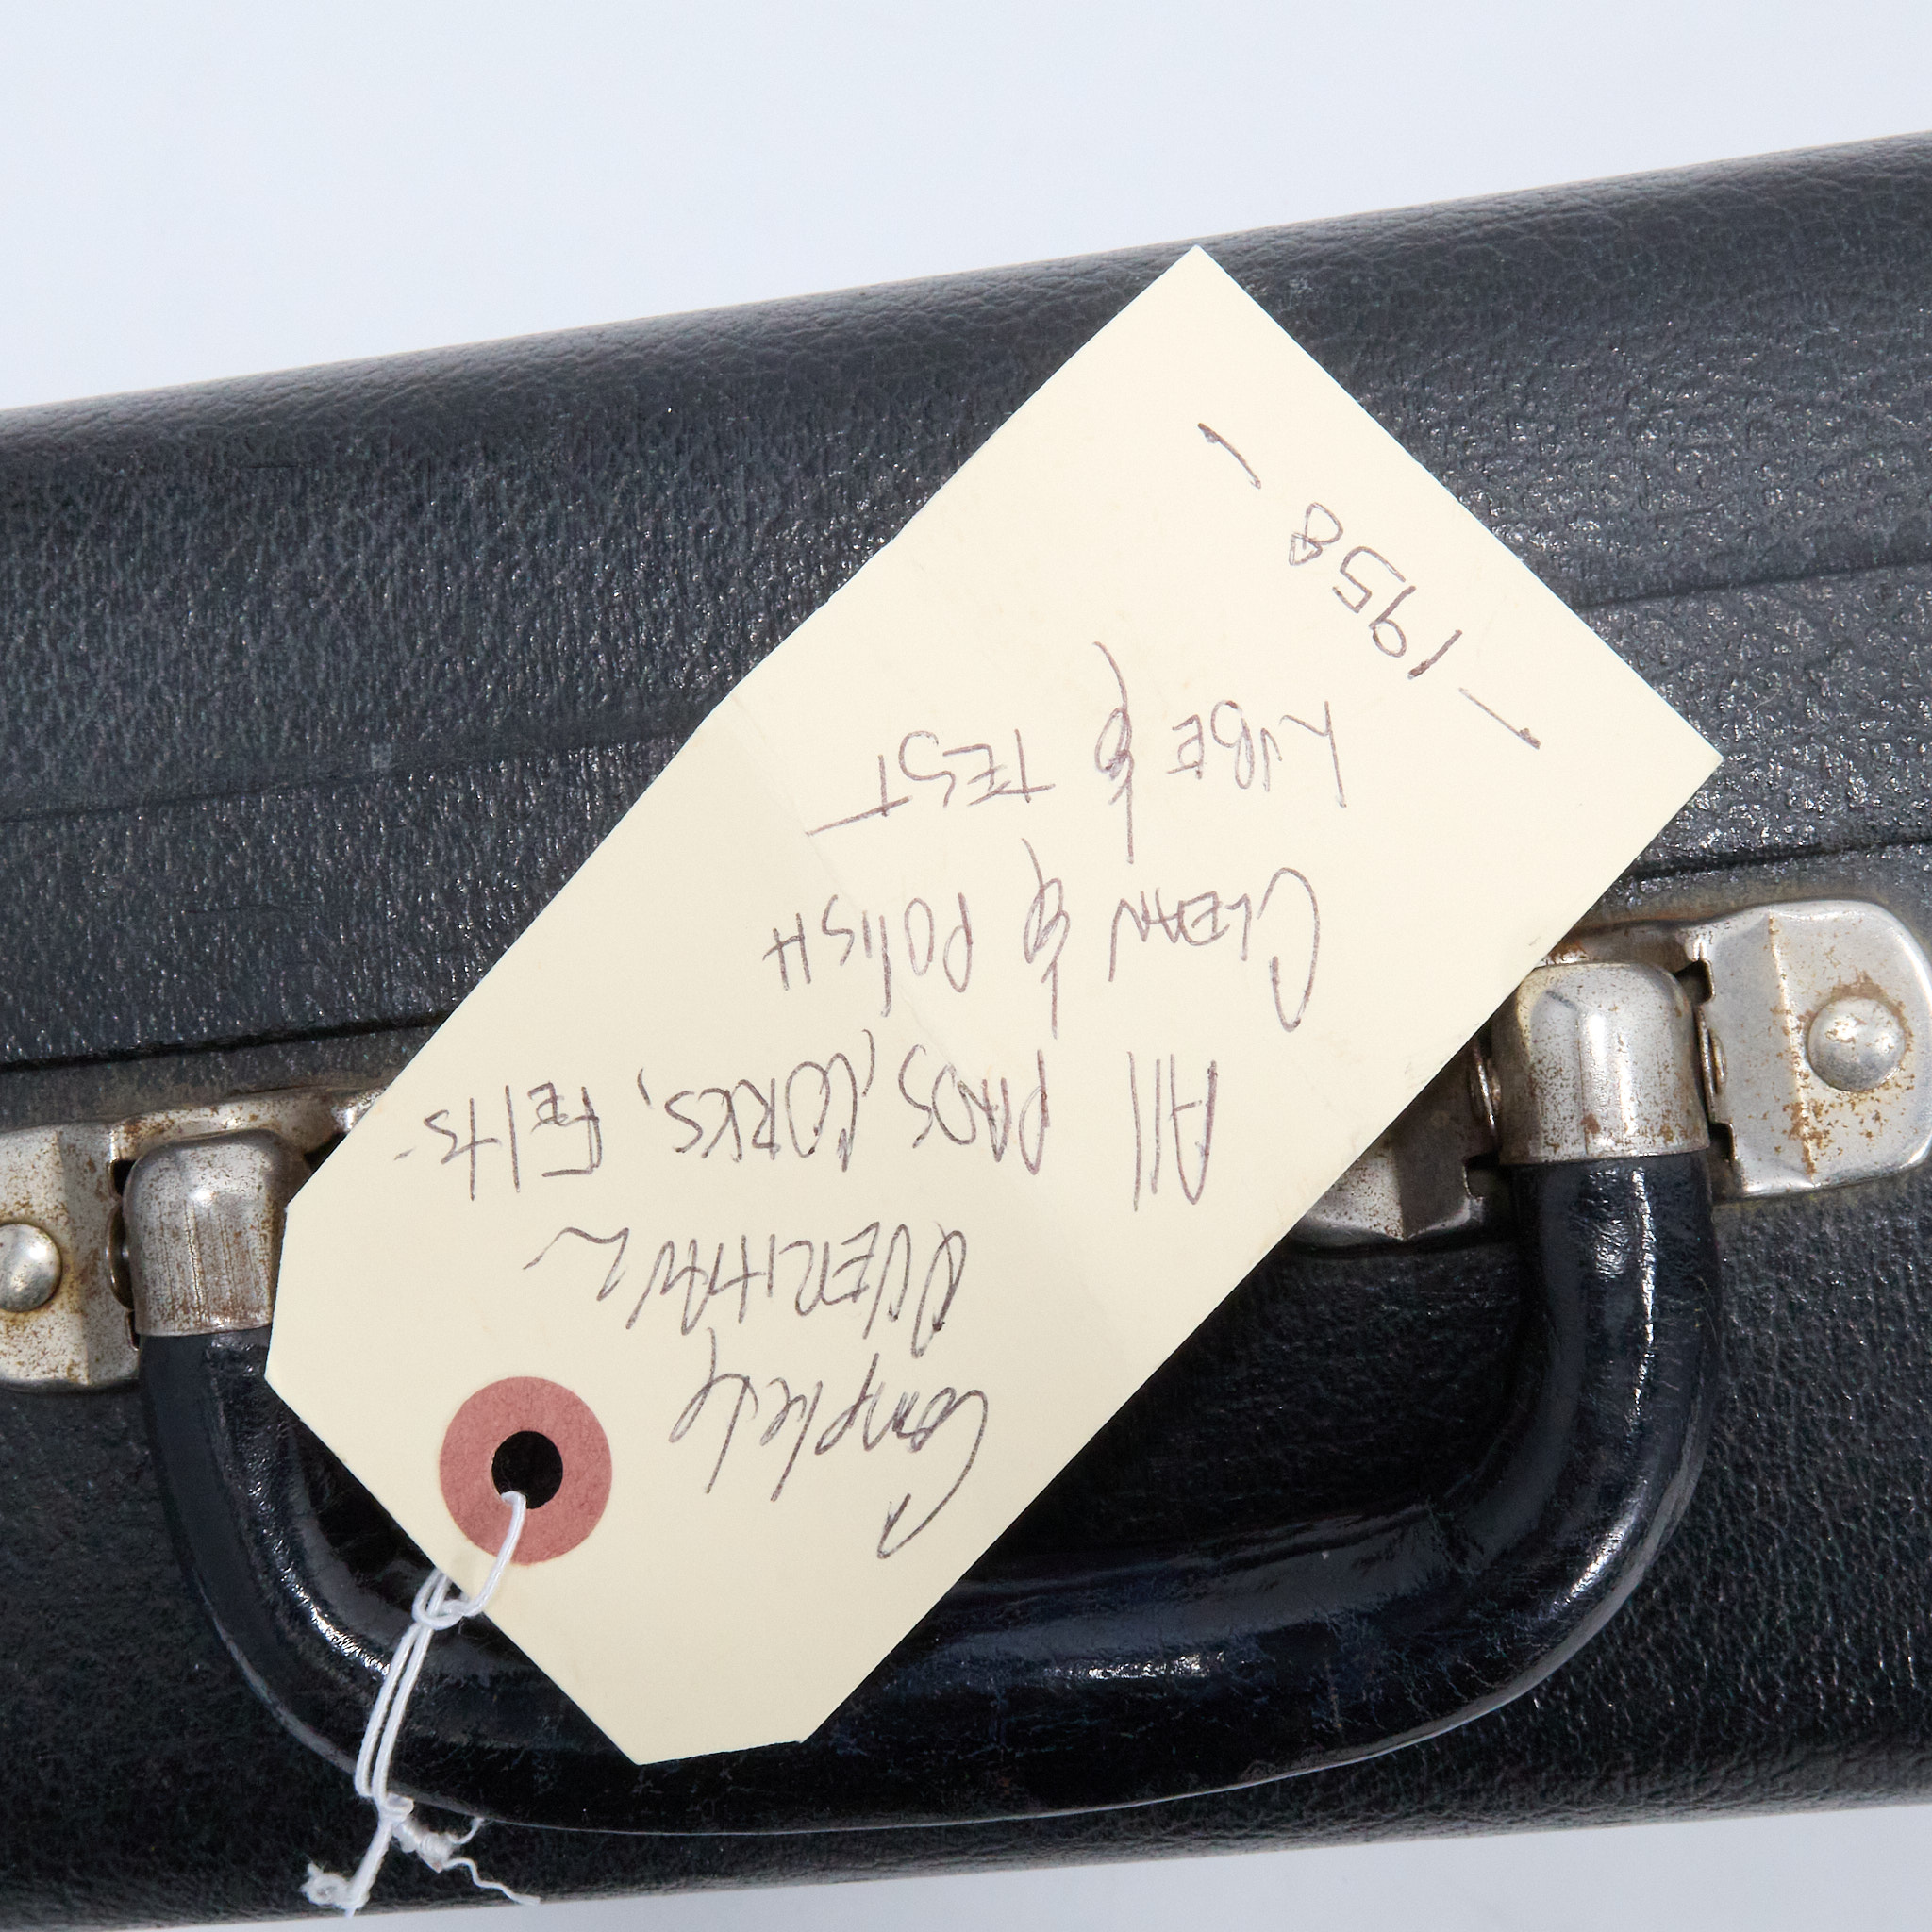 Complete
OVERHAUL -
All PADS, CORKS, FElTS-
CLEAN & POlISH
LUBE & TEST
- 1958 -